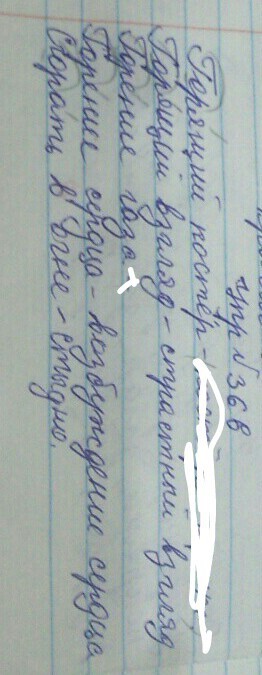 упр №36 в
Горящий костёр -
Горящий взгляд - страстный взгляд
Горение газа
Горение сердца - возбуждение сердца
Сгорать в огне - стыдно.